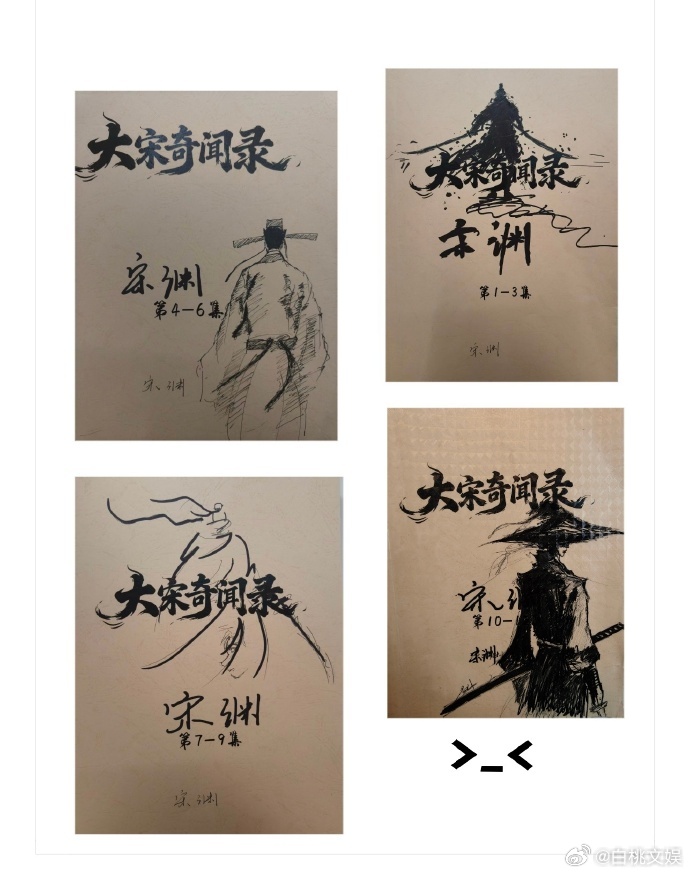 大宋奇闻录
宋渊
第4-6集
宋渊
大宋奇闻录
宋渊
第1-3集
宋渊
大宋奇闻录
宋渊
第7-9集
宋渊
大宋奇闻录
宋
第10-
宋渊
>_<
@白桃文娱